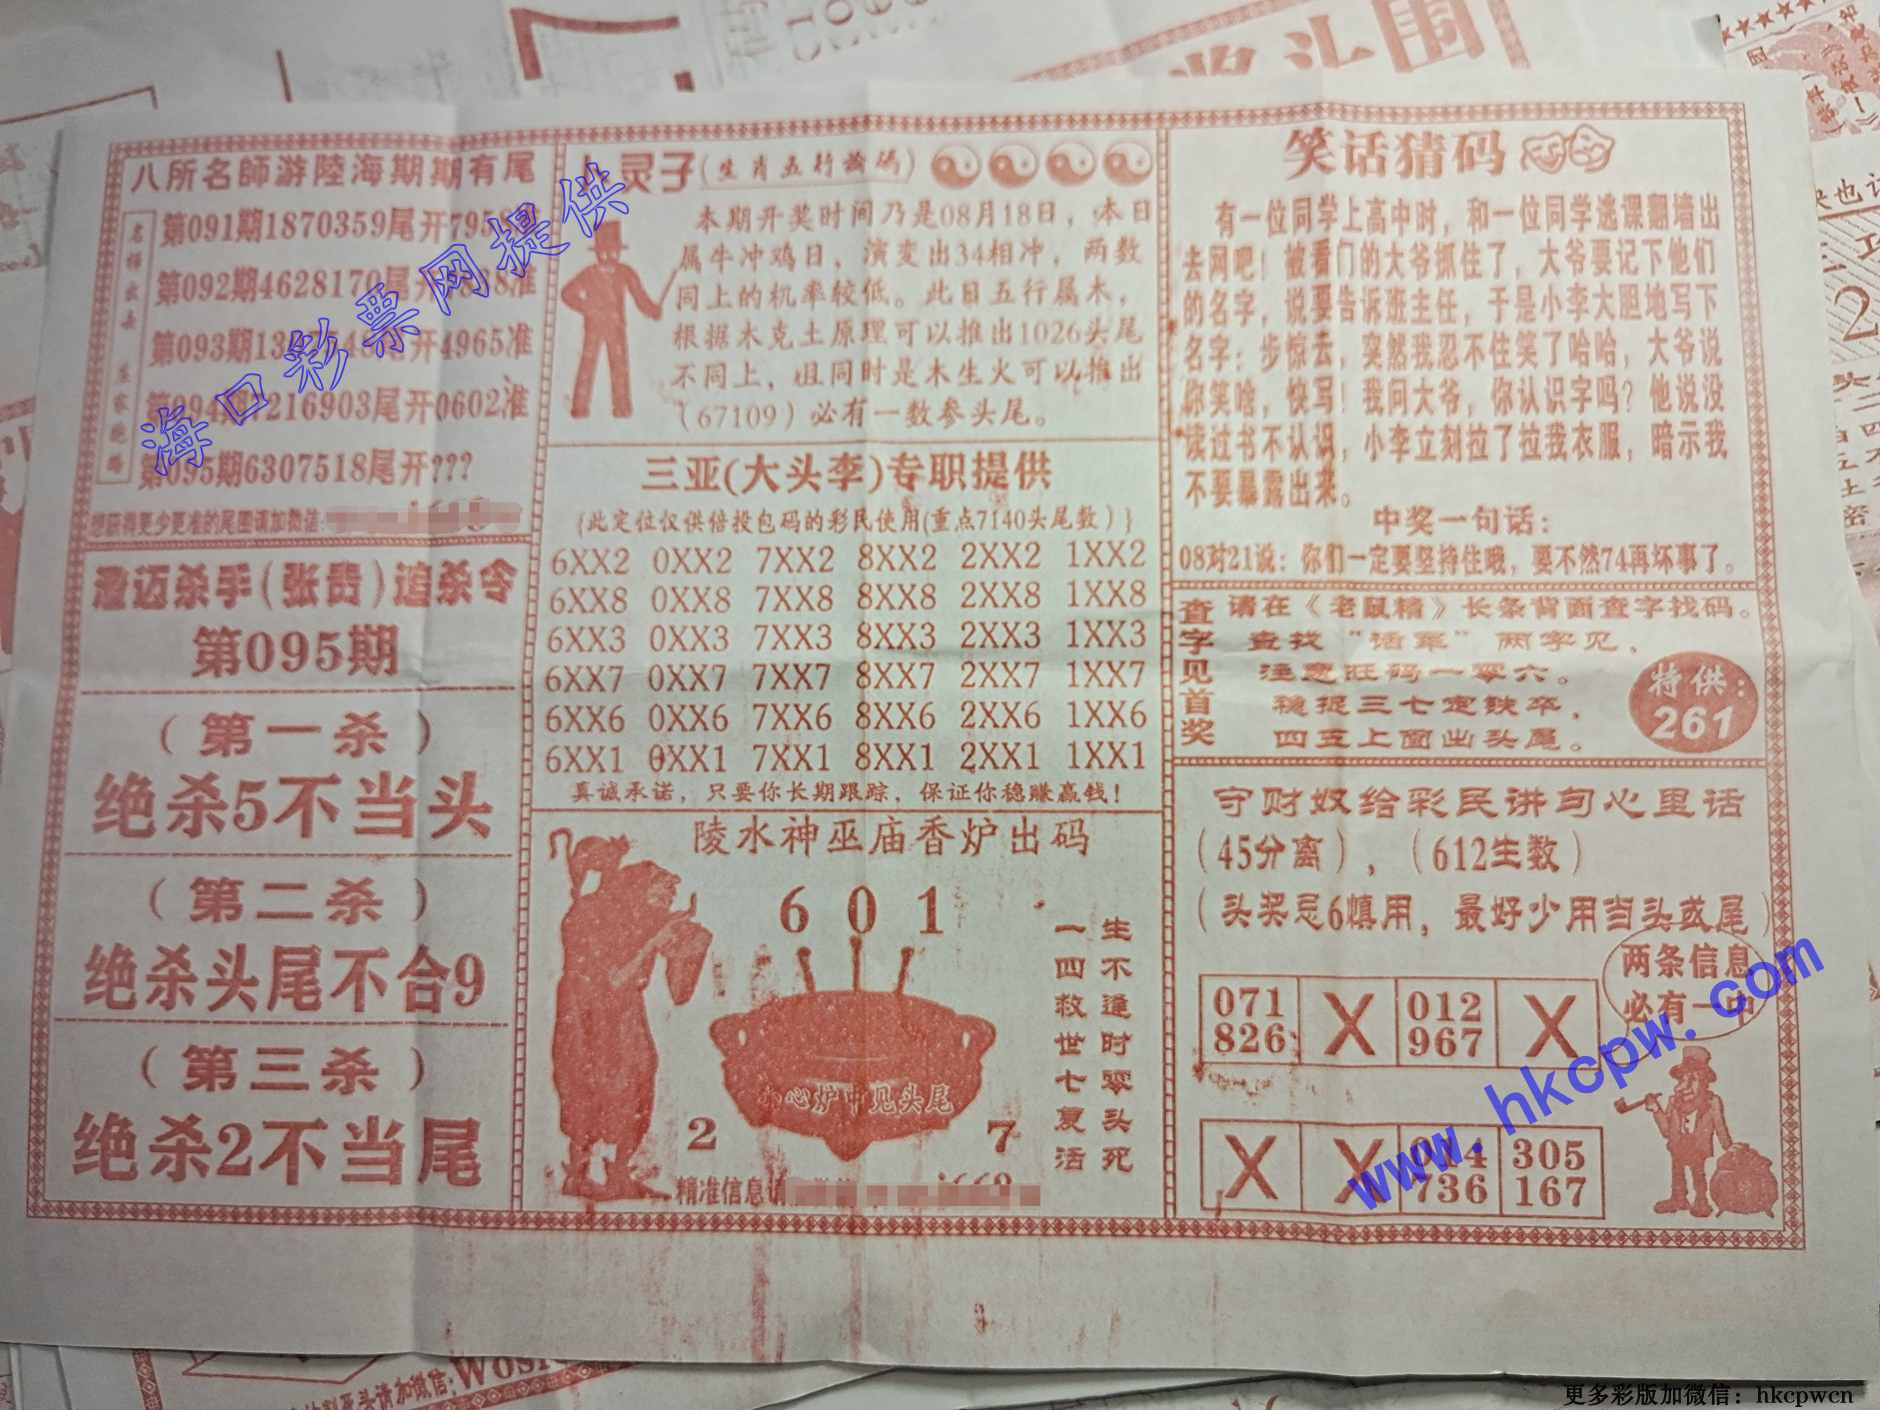 八所名師游陸海期期有尾
第091期1870359尾开795
第092期4628170尾开
准
第093期13
开4965准
216903尾开0602准
第095期6307518尾开???
想获得更少更准的尾图请加微信:
澄迈杀手(张贵)追杀令
第095期
(第一杀)
绝杀5不当头
(第二杀)
绝杀头尾不合9
(第三杀)
绝杀2不当尾
卜灵子(生肖五行论码)
本期开奖时间乃是08月18日，本日
属牛冲鸡日，演变出34相冲，两数
同上的机率较低。此日五行属木，
根据木克土原理可以推出1026头尾
不同上，且同时是木生火可以推出
(67109)必有一数参头尾。
三亚(大头李)专职提供
{此定位仅供倍投包码的彩民使用(重点7140头尾数)}
6XX2 0XX2 7XX2 8XX2 2XX2 1XX2
6XX8 0XX8 7XX8 8XX8 2XX8 1XX8
6XX3 0XX3 7XX3 8XX3 2XX3 1XX3
6XX7 0XX7 7XX7 8XX7 2XX7 1XX7
6XX6 0XX6 7XX6 8XX6 2XX6 1XX6
6XX1 0XX1 7XX1 8XX1 2XX1 1XX1
真诚承诺，只要你长期跟踪，保证你稳赚赢钱！
陵水神巫庙香炉出码
6 0 1
心炉中见头尾
2 7
生不逢时零头死
一四救世七复活
精准信息请
笑话猜码
有一位同学上高中时，和一位同学逃课翻墙出
去网吧！被看门的大爷抓住了，大爷要记下他们
的名字，说要告诉班主任，于是小李大胆地写下
名字：步惊云，突然我忍不住笑了哈哈，大爷说
你笑啥，快写！我问大爷，你认识字吗？他说没
读过书不认识，小李立刻拉了拉我衣服，暗示我
不要暴露出来。
中奖一句话：
08对21说：你们一定要坚持住哦，要不然74再坏事了。
查字见首奖
请在《老鼠精》长条背面查字找码。
查找“话军”两字见，
注意旺码一零六。
稳捉三七定铁卒，
四五上面出头尾。
特供：
261
守财奴给彩民讲句心里话
(45分离)，(612生数)
(头奖忌6慎用，最好少用当头或尾)
两条信息
必有一中
071 X 012 X
826 967
X X 014 305
736 167
海口彩票网提供
www.hkcpw.com
更多彩版加微信：hkcpwcn